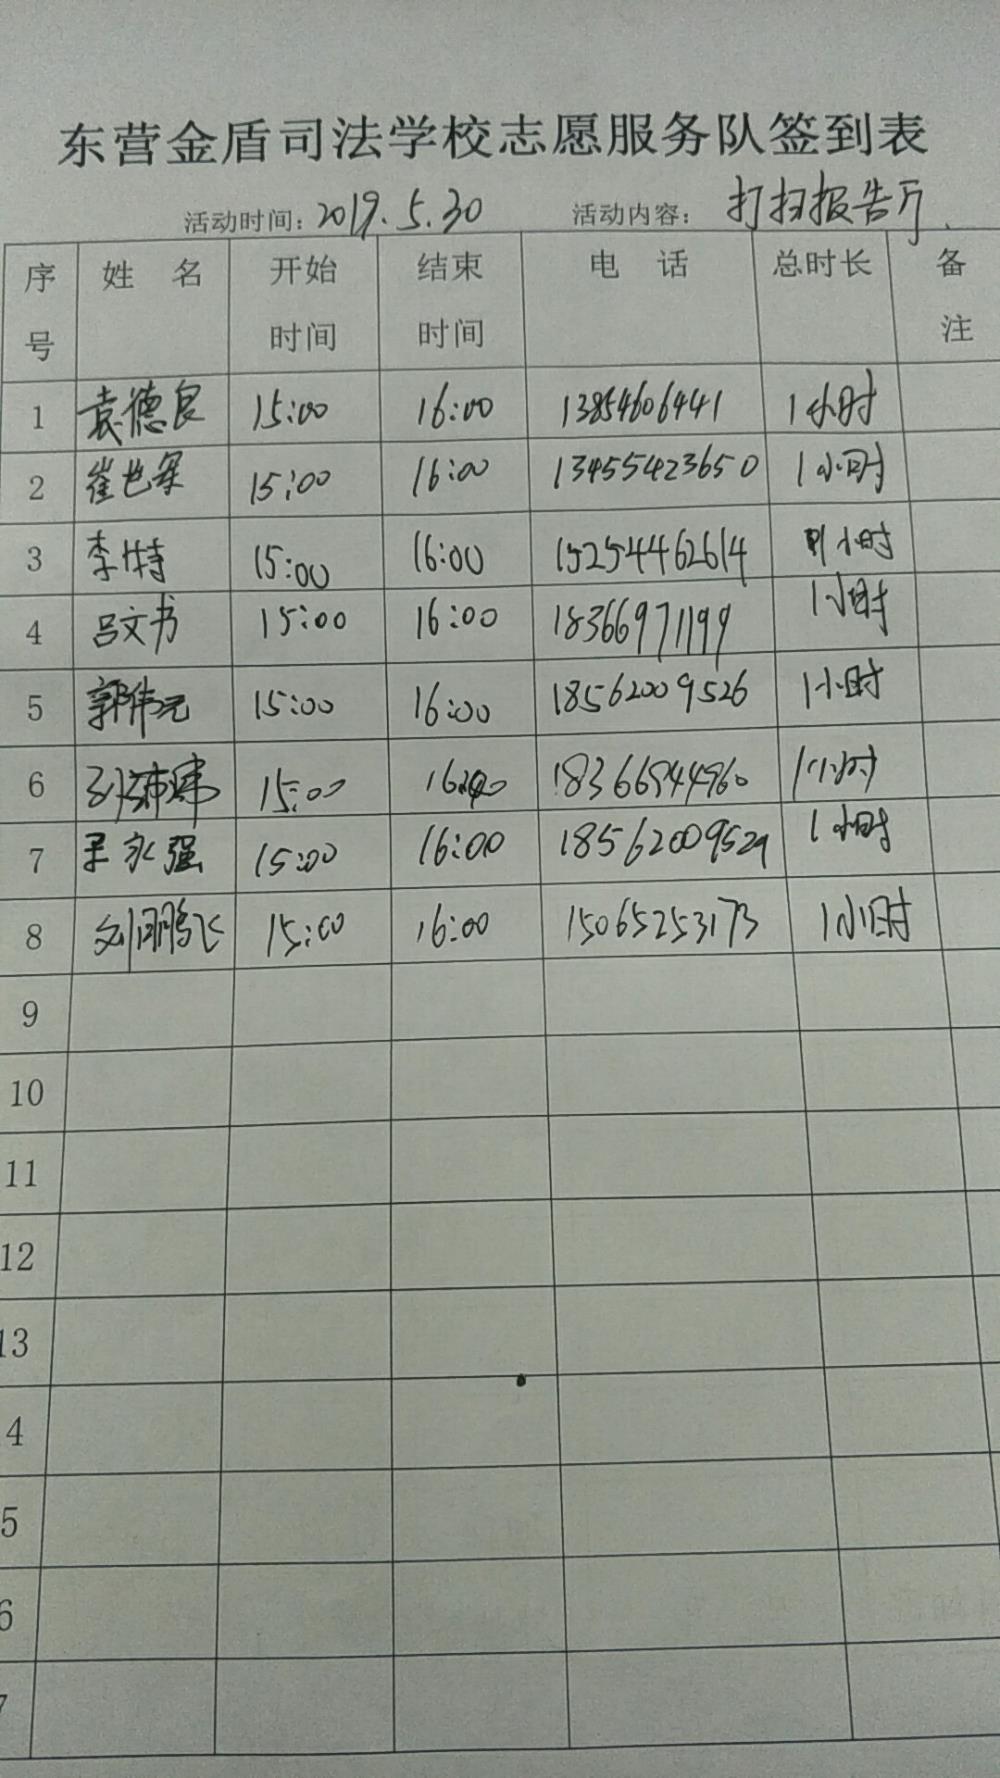 东营金盾司法学校志愿服务队签到表
活动时间：2019.5.30 活动内容：打扫报告厅
序号 姓名 开始时间 结束时间 电话 总时长 备注
1 袁德良 15:00 16:00 13854606441 1小时
2 崔世军 15:00 16:00 13455423650 1小时
3 李特 15:00 16:00 15254462614 1小时
4 吕文书 15:00 16:00 18366971199 1小时
5 郭伟元 15:00 16:00 18562009526 1小时
6 15:00 16:00 18366944960 1小时
7 永强 15:00 16:00 18562009529 1小时
8 刘鹏飞 15:00 16:00 15065253173 1小时
9
10
11
12
13
4
5
6
7